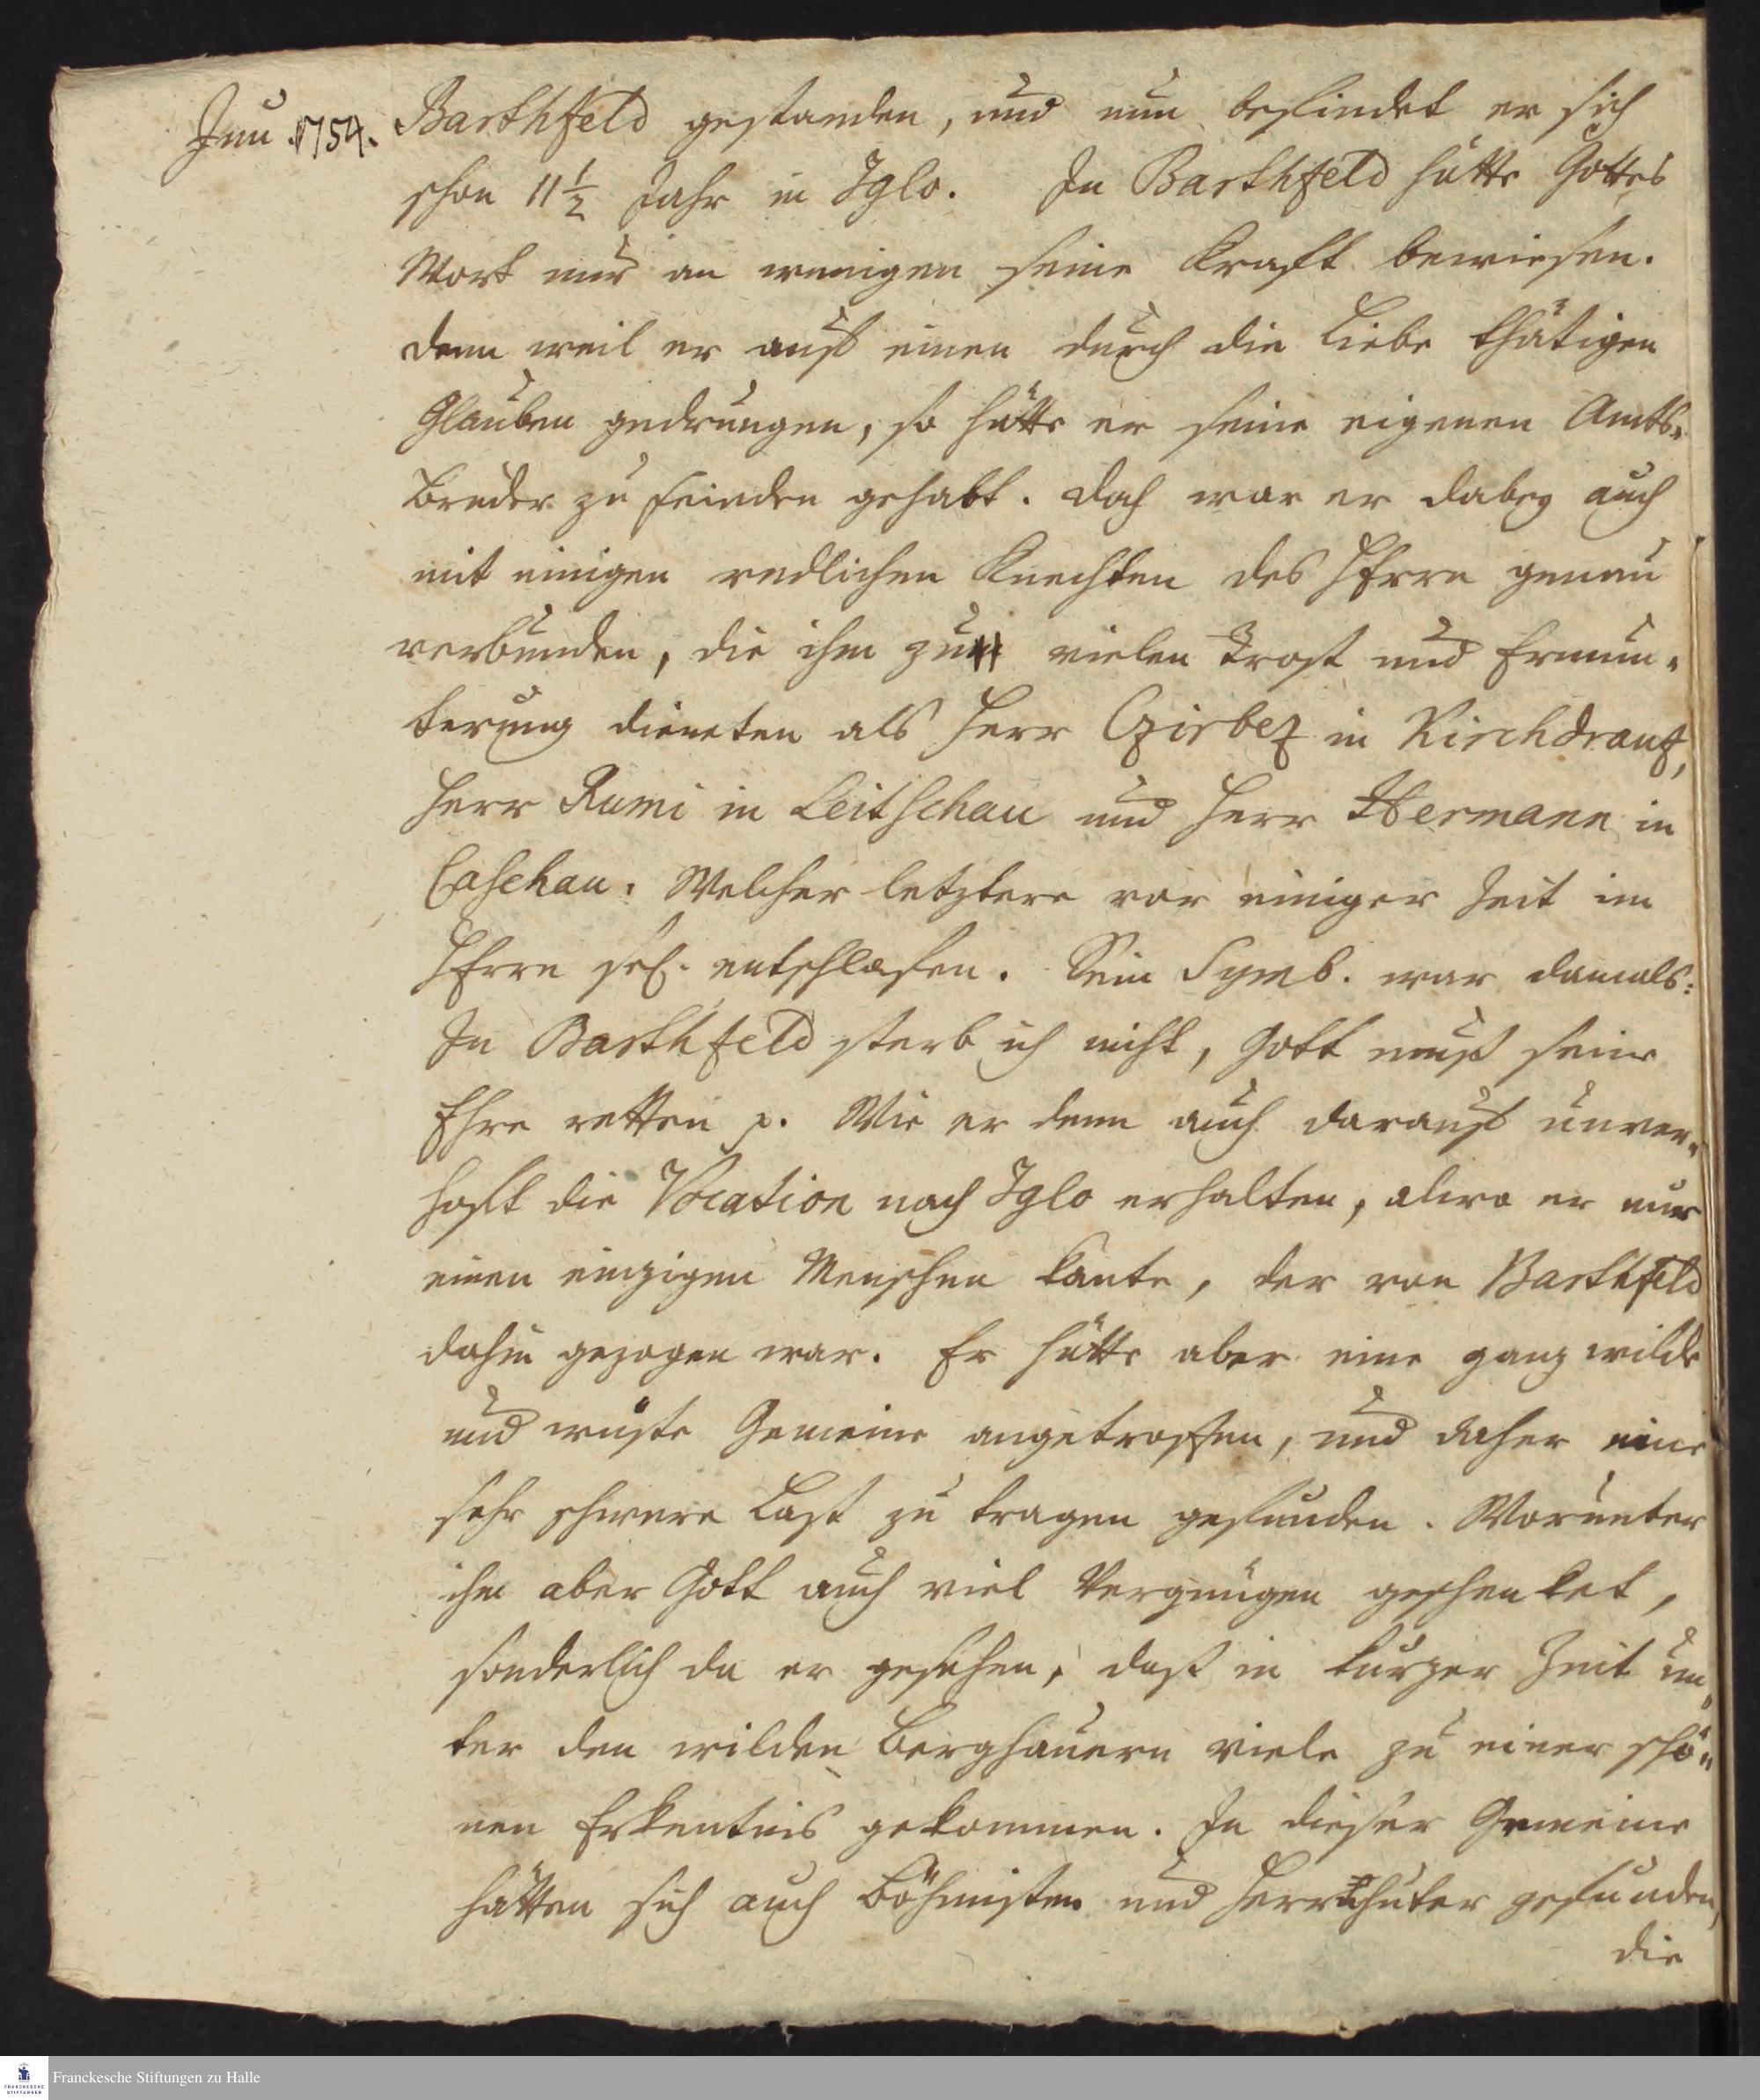 Jun. 1754.
Barthfeld gestanden, und nun befindet er sich
schon 11 1/2 Jahr in Iglo. In Barthfeld hätte Gottes
Wort nur an wenigen seine Kraft bewiesen.
denn weil er auf einen durch die Liebe thätigen
Glauben gedrungen, so hätte er seine eigenen Amts-
brüder zu Feinden gehabt. doch war er dabey auch
mit einigen redlichen Knechten des HErrn genau
verbunden, die ihm zu vielen Trost und Ermun-
terung dieneten als Herr Czirbez in Kirchdrauf,
Herr Rumi in Leitschau und Herr Hermann in
Caschau. Welcher letztere vor einiger Zeit im
HErrn sel. entschlafen. Sein Symb. war damals:
In Barthfeld sterb ich nicht, Gott muß seine
Ehre retten p. Wie er denn auch darauf unver-
hoft die Vocation nach Iglo erhalten, alwo er nur
einen einzigen Menschen kante, der von Barthfeld
dahin gezogen war. Er hätte aber eine ganz wilde
und wüste Gemeine angetroffen, und daher eine
sehr schwere Last zu tragen gefunden. Worunter
ihm aber Gott auch viel Vergnügen geschenket,
sonderlich da er gesehen, daß in kurzer Zeit un-
ter den wilden Berghauern viele zu einer schö-
nen Erkentnis gekommen. In dieser Gemeine
hätten sich auch Böhmisten und Herrnhuter gefunden,
die
Franckesche Stiftungen zu Halle
FRANCKESCHE
STIFTUNGEN